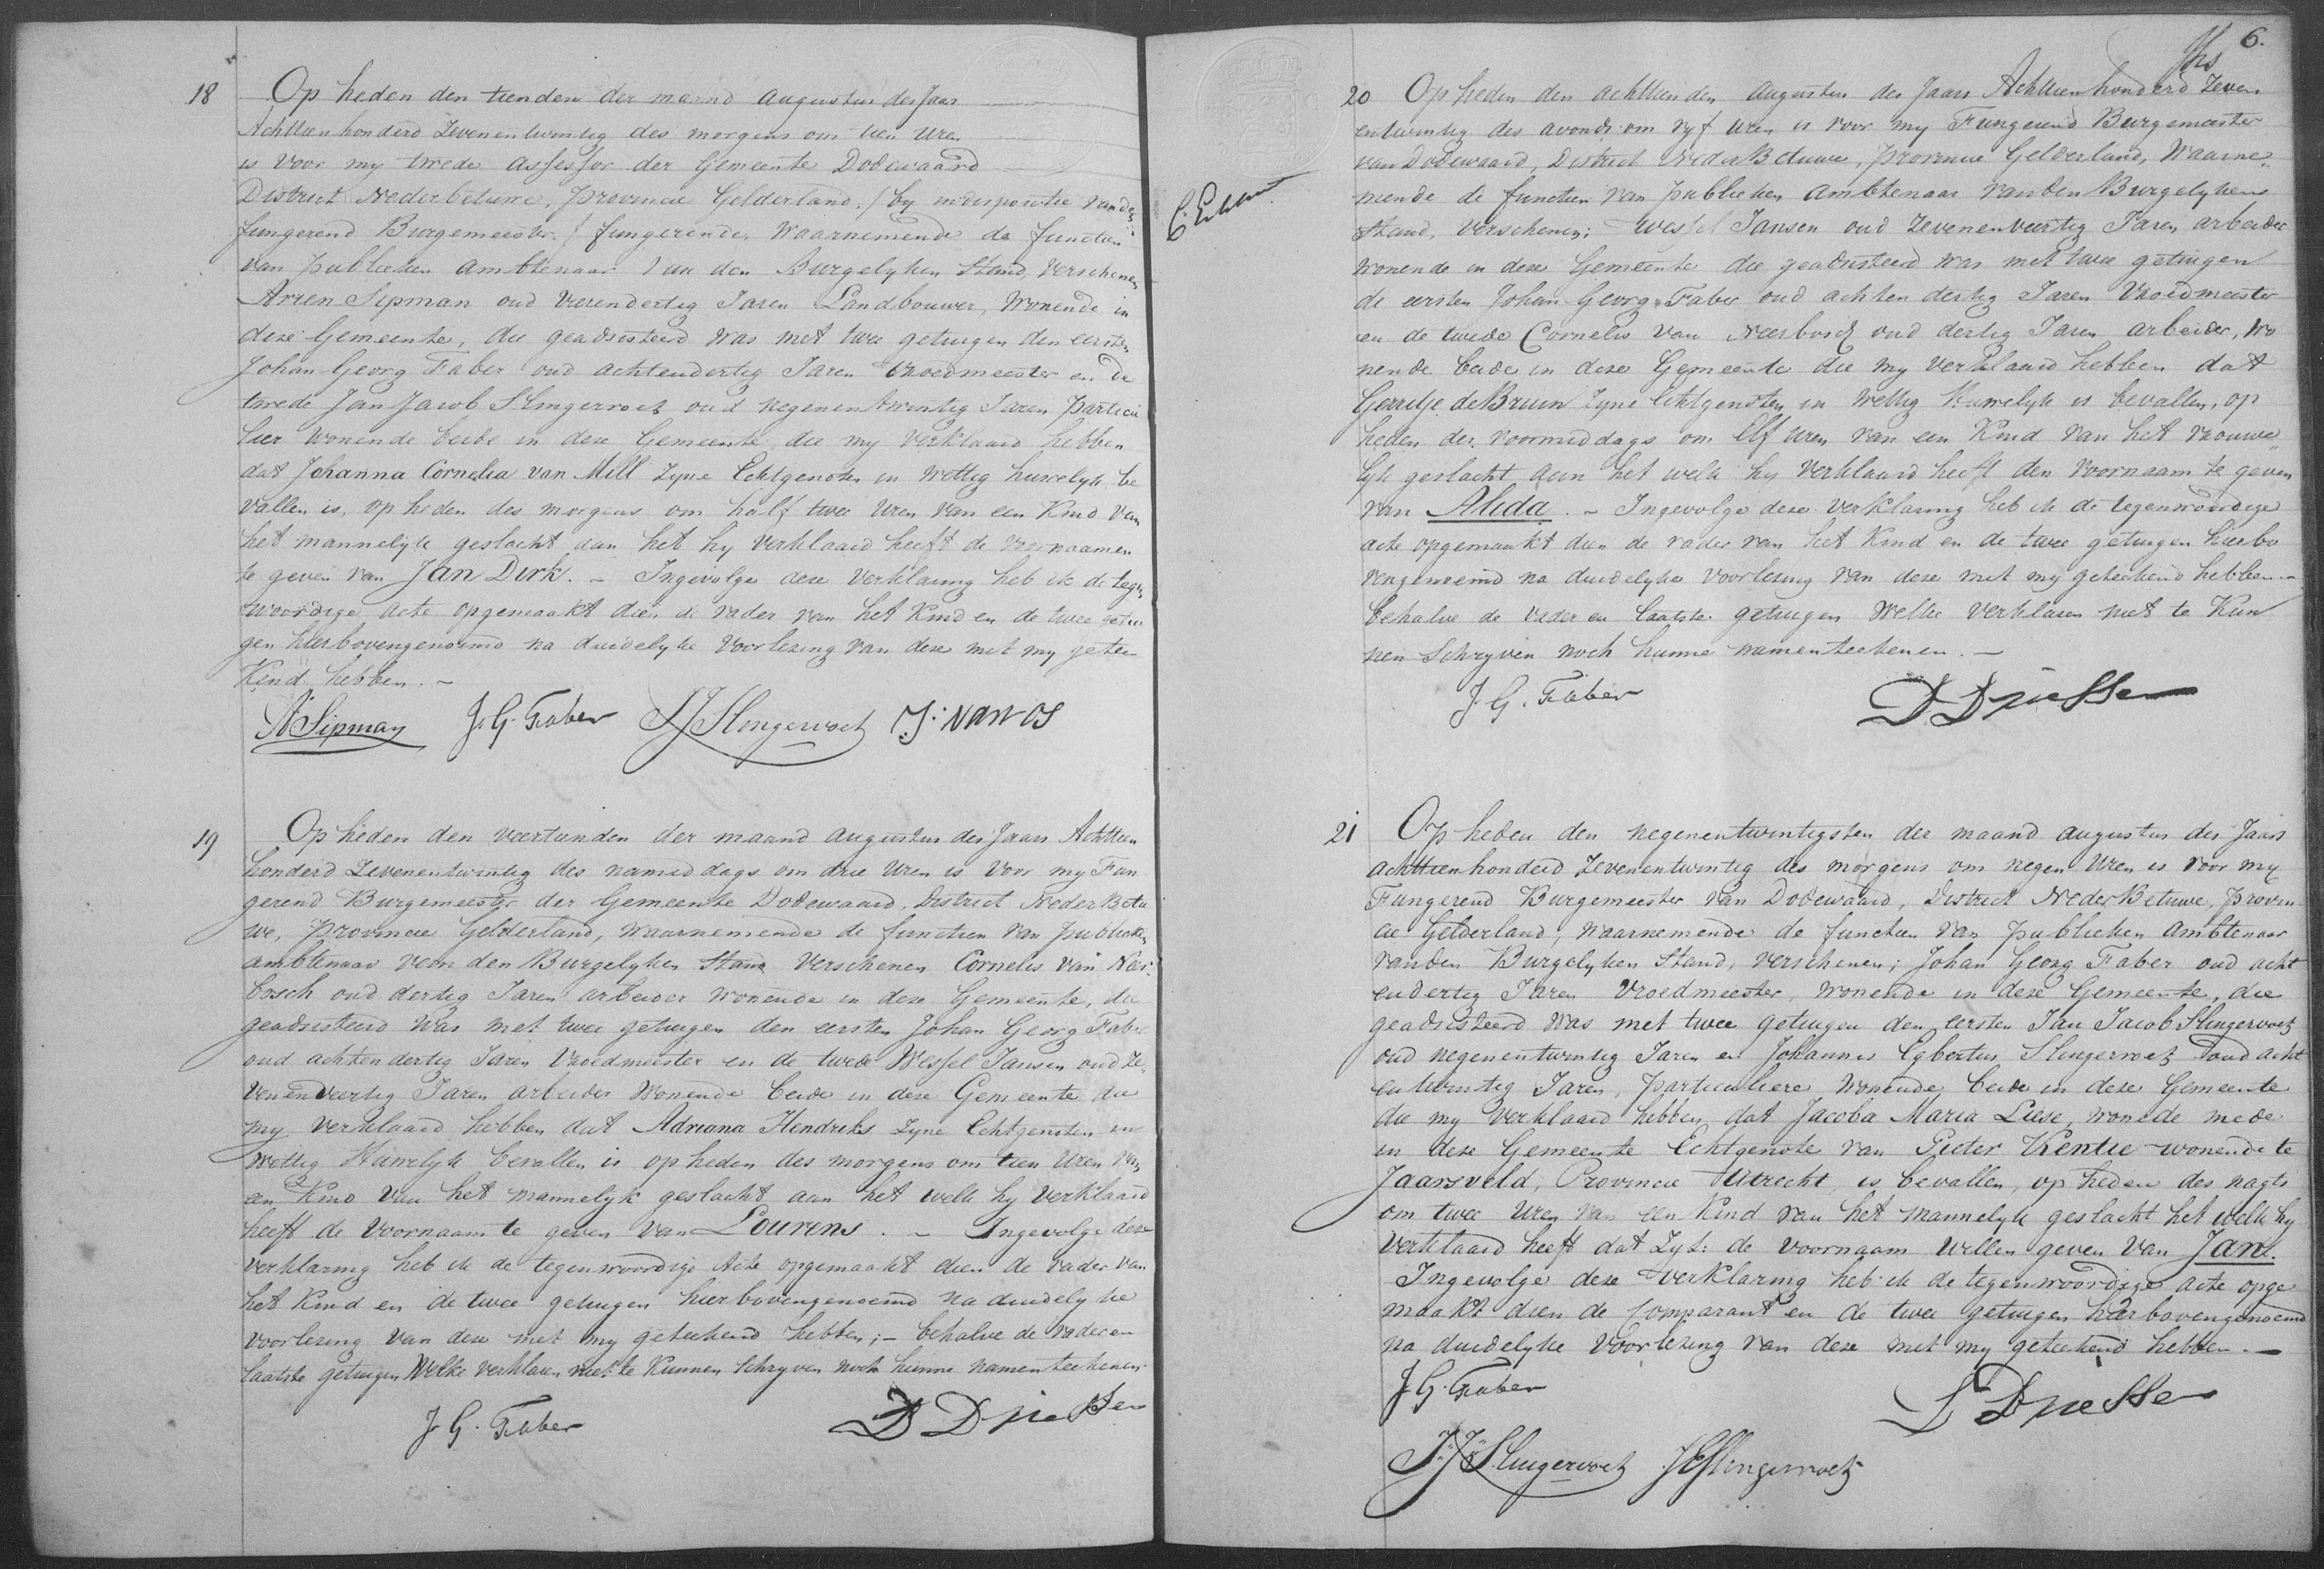 18 Op heden den tienden der maand augustus des Jaars
Achttien honderd Zevenentwintig des morgens om tien uren
is voor my twede assessor der Gemeente Dodewaard
District Nederbetuwe, Provincie Gelderland, / by indispositie van den
fungerend Burgemeester / fungerende, waarnemende de functien
van Publieken ambtenaar van den Burgelyken Stand, Verschenen
Arien Sipman oud vierendertig Jaren Landbouwer, wonende in
deze Gemeente, die geadsisteerd was met twee getuigen den eersten
Johan Georg Faber oud achtendertig Jaren Vroedmeester en de
twede Jan Jacob Slingervoet oud negenentwintig Jaren particu
lier wonende beide in deze Gemeente die my verklaard hebben
dat Johanna Cornelia van Mill zyne Echtgenoten in wettig huwelyk be
vallen is, op heden des morgens om half twee uren van een Kind van
het mannelyk geslacht aan het hy verklaard heeft de voornaamen
te geven van Jan Dirk. – Ingevolge deze verklaring heb ik de tegen
woordige acte opgemaakt dien de vader van het Kind en de twee getui
gen hierbovengenoemd na duidelyke voorlezing van deze met my getee
Kend hebben. –
A Sipman J. G. Faber JJ Slingervoet J. van Os
19 Op heden den veertienden der maand augustus des Jaars Achttien
honderd Zevenentwintig des namiddags om drie uren is voor my Fun
gerend Burgemeester der Gemeente Dodewaard, District Neder Betu
we, Provincie Gelderland, waarnemende de functien van Publieken
ambtenaar van den Burgelyken Stand Verschenen Cornelis van Neer
bosch oud dertig Jaren arbeider wonende in deze Gemeente, die
geadsisteerd was met twee getuigen den eersten Johan Georg Faber
oud achtendertig Jaren Vroedmeester en de twede Wessel Jansen oud Ze
venenveertig Jaren arbeider wonende beide in deze Gemeente die
my verklaard hebben dat Adriana Hendriks zyne Echtgenoten in
wettig Huwelyk bevallen is op heden des morgens om tien uren van
een Kind van het mannelyk geslacht aan het welk hy verklaard
heeft de voornaam te geven van Lourens. – Ingevolge deze
verklaring heb ik de tegenwoordige Acte opgemaakt dien de vader van
het Kind en de twee getuigen hierbovengenoemd na duidelyke
voorlezing van deze met my geteekend hebben; – behalve de vader en
laatste getuigen Welke verklaren niet te Kunnen Schryven noch hunne namen teekenen.
J. G. Faber D Driessen
6.
20 Op heden den achttienden augustus des Jaars Achttienhonderd Zeven
entwintig des avonds om vyf uren is voor my Fungerend Burgemeester
van Dodewaard, District Neder Betuwe, provincie Gelderland, Waarne
mende de functien van publieken ambtenaar van den Burgelyken
Stand, verschenen; Wessel Jansen oud zevenenveertig Jaren arbeider
wonende in deze Gemeente die geadsisteerd was met twee getuigen
de eersten Johan Georg Faber oud achtendertig Jaren Vroedmeester
en de twede Cornelis van Neerbosch oud dertig Jaren arbeider, wo
nende beide in deze Gemeente die my verklaard hebben dat
Gerritje de Bruin zyne Echtgenoten in wettig Huwelyk is bevallen, op
heden des voormiddags om Elf uren van een Kind van het vrouwe
lyk geslacht aan het welk hy verklaard heeft den voornaam te geven
van Alida. – Ingevolge deze verklaring heb ik de tegenwoordige
acte opgemaakt dien de vader van het Kind en de twee getuigen hierbo
vengenoemd na duidelyke voorlezing van deze met my geteekend hebben –
behalve de vader en laatste getuigen Welke verklaren niet te Kun
nen Schryven noch hunne namen teekenen. –
J. G. Faber D Driessen
21 Op heden den negenentwintigsten der maand augustus des Jaars
achttienhonderd Zevenentwintig des morgens om negen uren is voor my
Fungerend Burgemeester van Dodewaard, District Neder Betuwe, Provin
cie Gelderland, waarnemende de functien van publieken ambtenaar
van den Burgelyken Stand, verschenen; Johan Georg Faber oud acht
endertig Jaren Vroedmeester, wonende in deze Gemeente, die
geadsisteerd was met twee getuigen den eersten Jan Jacob Slingervoet
oud negenentwintig Jaren en Johannes Egbertus Slingervoet oud acht
entwintig Jaren, particuliere wonende beide in deze Gemeente
die my verklaard hebben, dat Jacoba Maria Liese, wonede mede
in deze Gemeente Echtgenote van Pieter Kentie wonende te
Jaarsveld, Provincie Utrecht, is bevallen, op heden des nagts
om twee uren van een Kind van het mannelyk geslacht het welk hy
verklaard heeft dat Zyl: de voornaam willen geven van Jan.
Ingevolge deze verklaring heb ik de tegenwoordige acte opge
maakt dien de Comparant en de twee getuigen hierbovengenoemd
na duidelyke voorlezing van deze met my geteekend hebben. –
J. G. Faber
D Driessen
J. J. Slingervoet JE Slingervoet